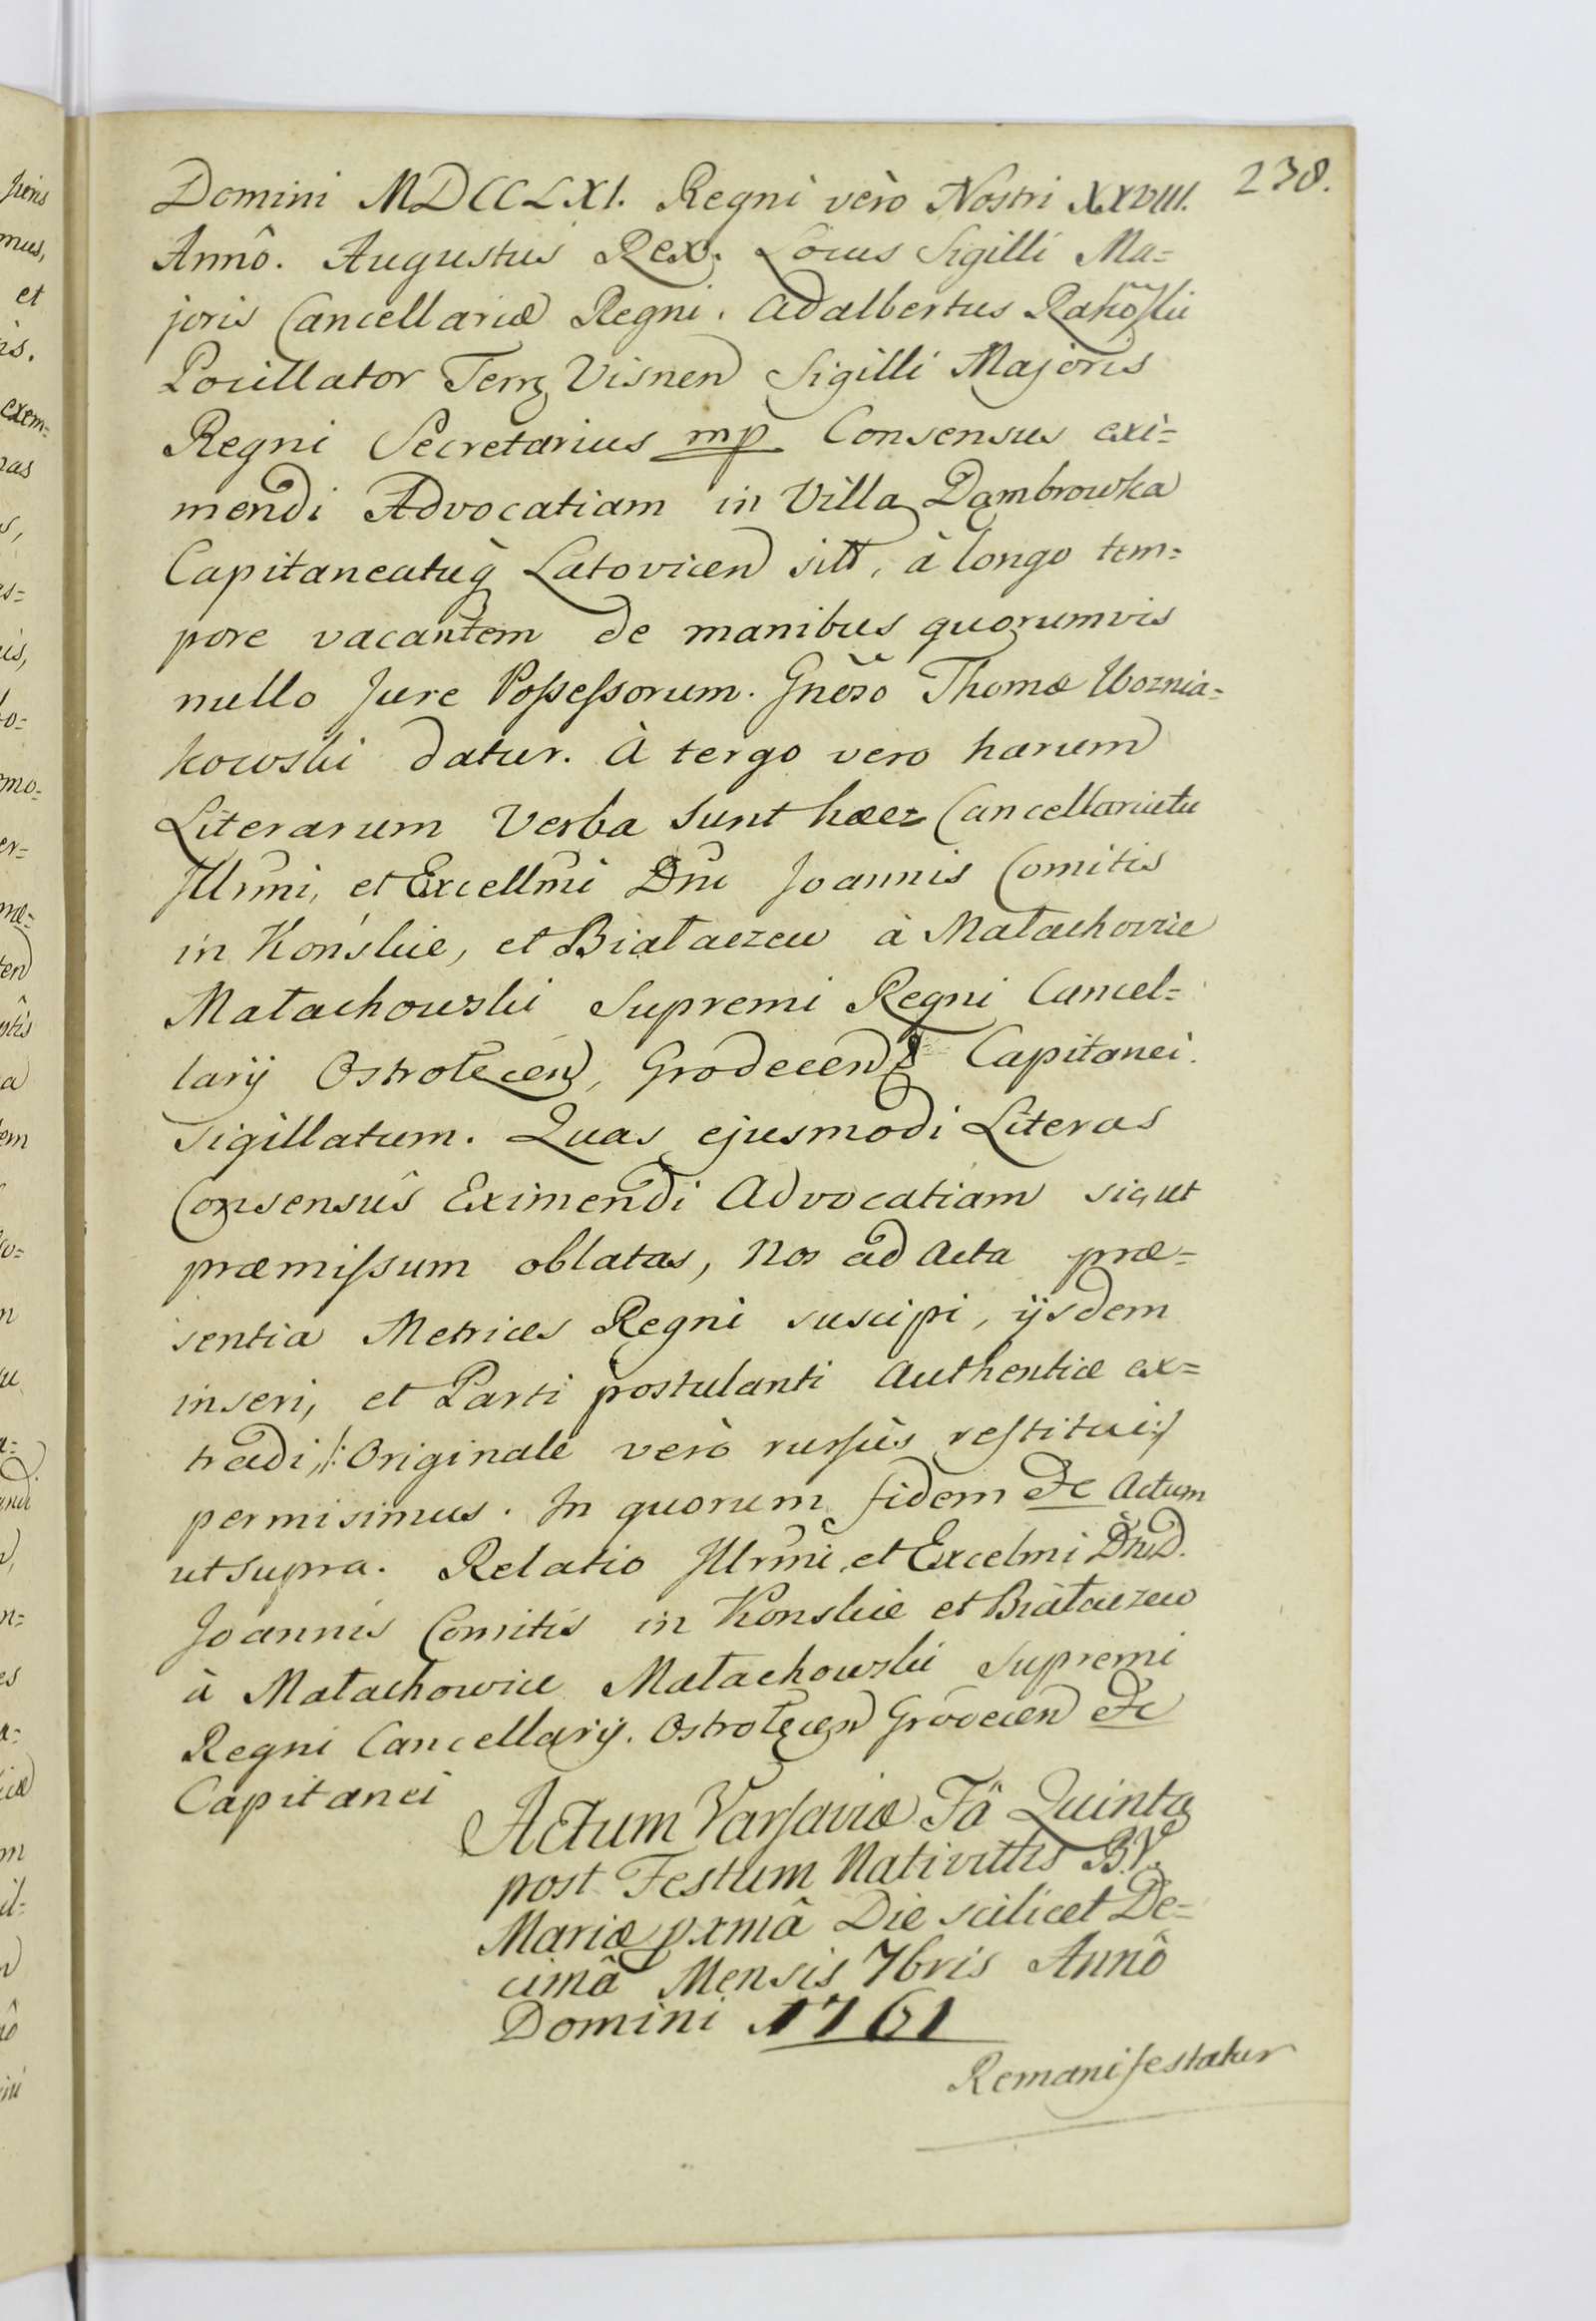 238.
Domini MDCCLXI. Regni verò Nostri XXVIII.
Annô. Augustus Rex. Locus Sigilli Ma=
joris Cancellariæ Regni. Adalbertus
Pocillator Terrę Visnen Sigilli Majoris
Regni Secretarius mp Consensus exi=
mendi Advocatiam in Villa Dąmbrowka
Capitaneatuq̀ Latovicen sitt, à longo tem=
pore vacantem de manibus quorumvis
nullo Jure Possessorum. Gnẽro Thomæ Woznia=
kowski datur. À tergo vero harum
Literarum Verba sunt hæc= Cancellariatu
Illrmi, et Excellmi Dni Joannis Comitis
in Końskie, et Białaczew à Małachowie
Małachowski Supremi Regni Cancel=
larÿ Ostrołęcen, Grodecen Capitanei.
Sigillatum. Quas ejusmodi Literas
Consensûs Eximendi Advocatiam sic, ut
præmissum oblatas, Nos ad Acta præ=
sentia Metrices Regni suscipi, ÿsdem
inseri, et Parti postulanti Authenticæ ex=
tradi, /: Originale verò rursùs restitui :/
permisimus. In quorum fidem &c Actum
ut supra. Relatio Illrmi, et Excelmi DnD.
Joannis Comitis in Konskie et Białaczew
à Małachowice Małachowski Supremi
Regni Cancellarÿ. Ostrołęcen Grodecen &c
Capitanei
Actum Varsaviæ Fâ Quintą
post Festum Nativittis B.V.
Mariæ pxmâ Die scilicet De=
cimâ Mensis 7bris Annô
Domini 1761
Remanifestatur